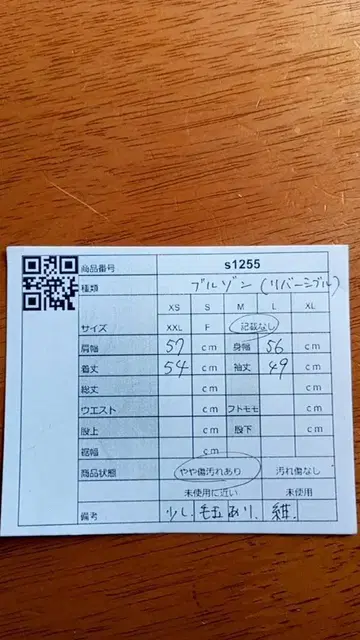 商品番号 s1255
種類 ブルゾン(リバーシブル)
XS S M L XL
サイズ XXL F 記載なし
肩幅 57 cm 身幅 56 cm
着丈 54 cm 袖丈 49 cm
総丈 cm cm
ウエスト cm フトモモ cm
股上 cm 股下 cm
裾幅 cm
商品状態 やや傷汚れあり 汚れ傷なし
未使用に近い 未使用
備考 少し毛玉あり. 紺.